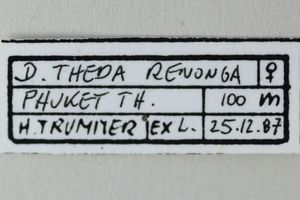 D. THEDA RENONGA ♀
PHUKET TH. 100 m
H. TRUMIYER EX L. 25.12.87